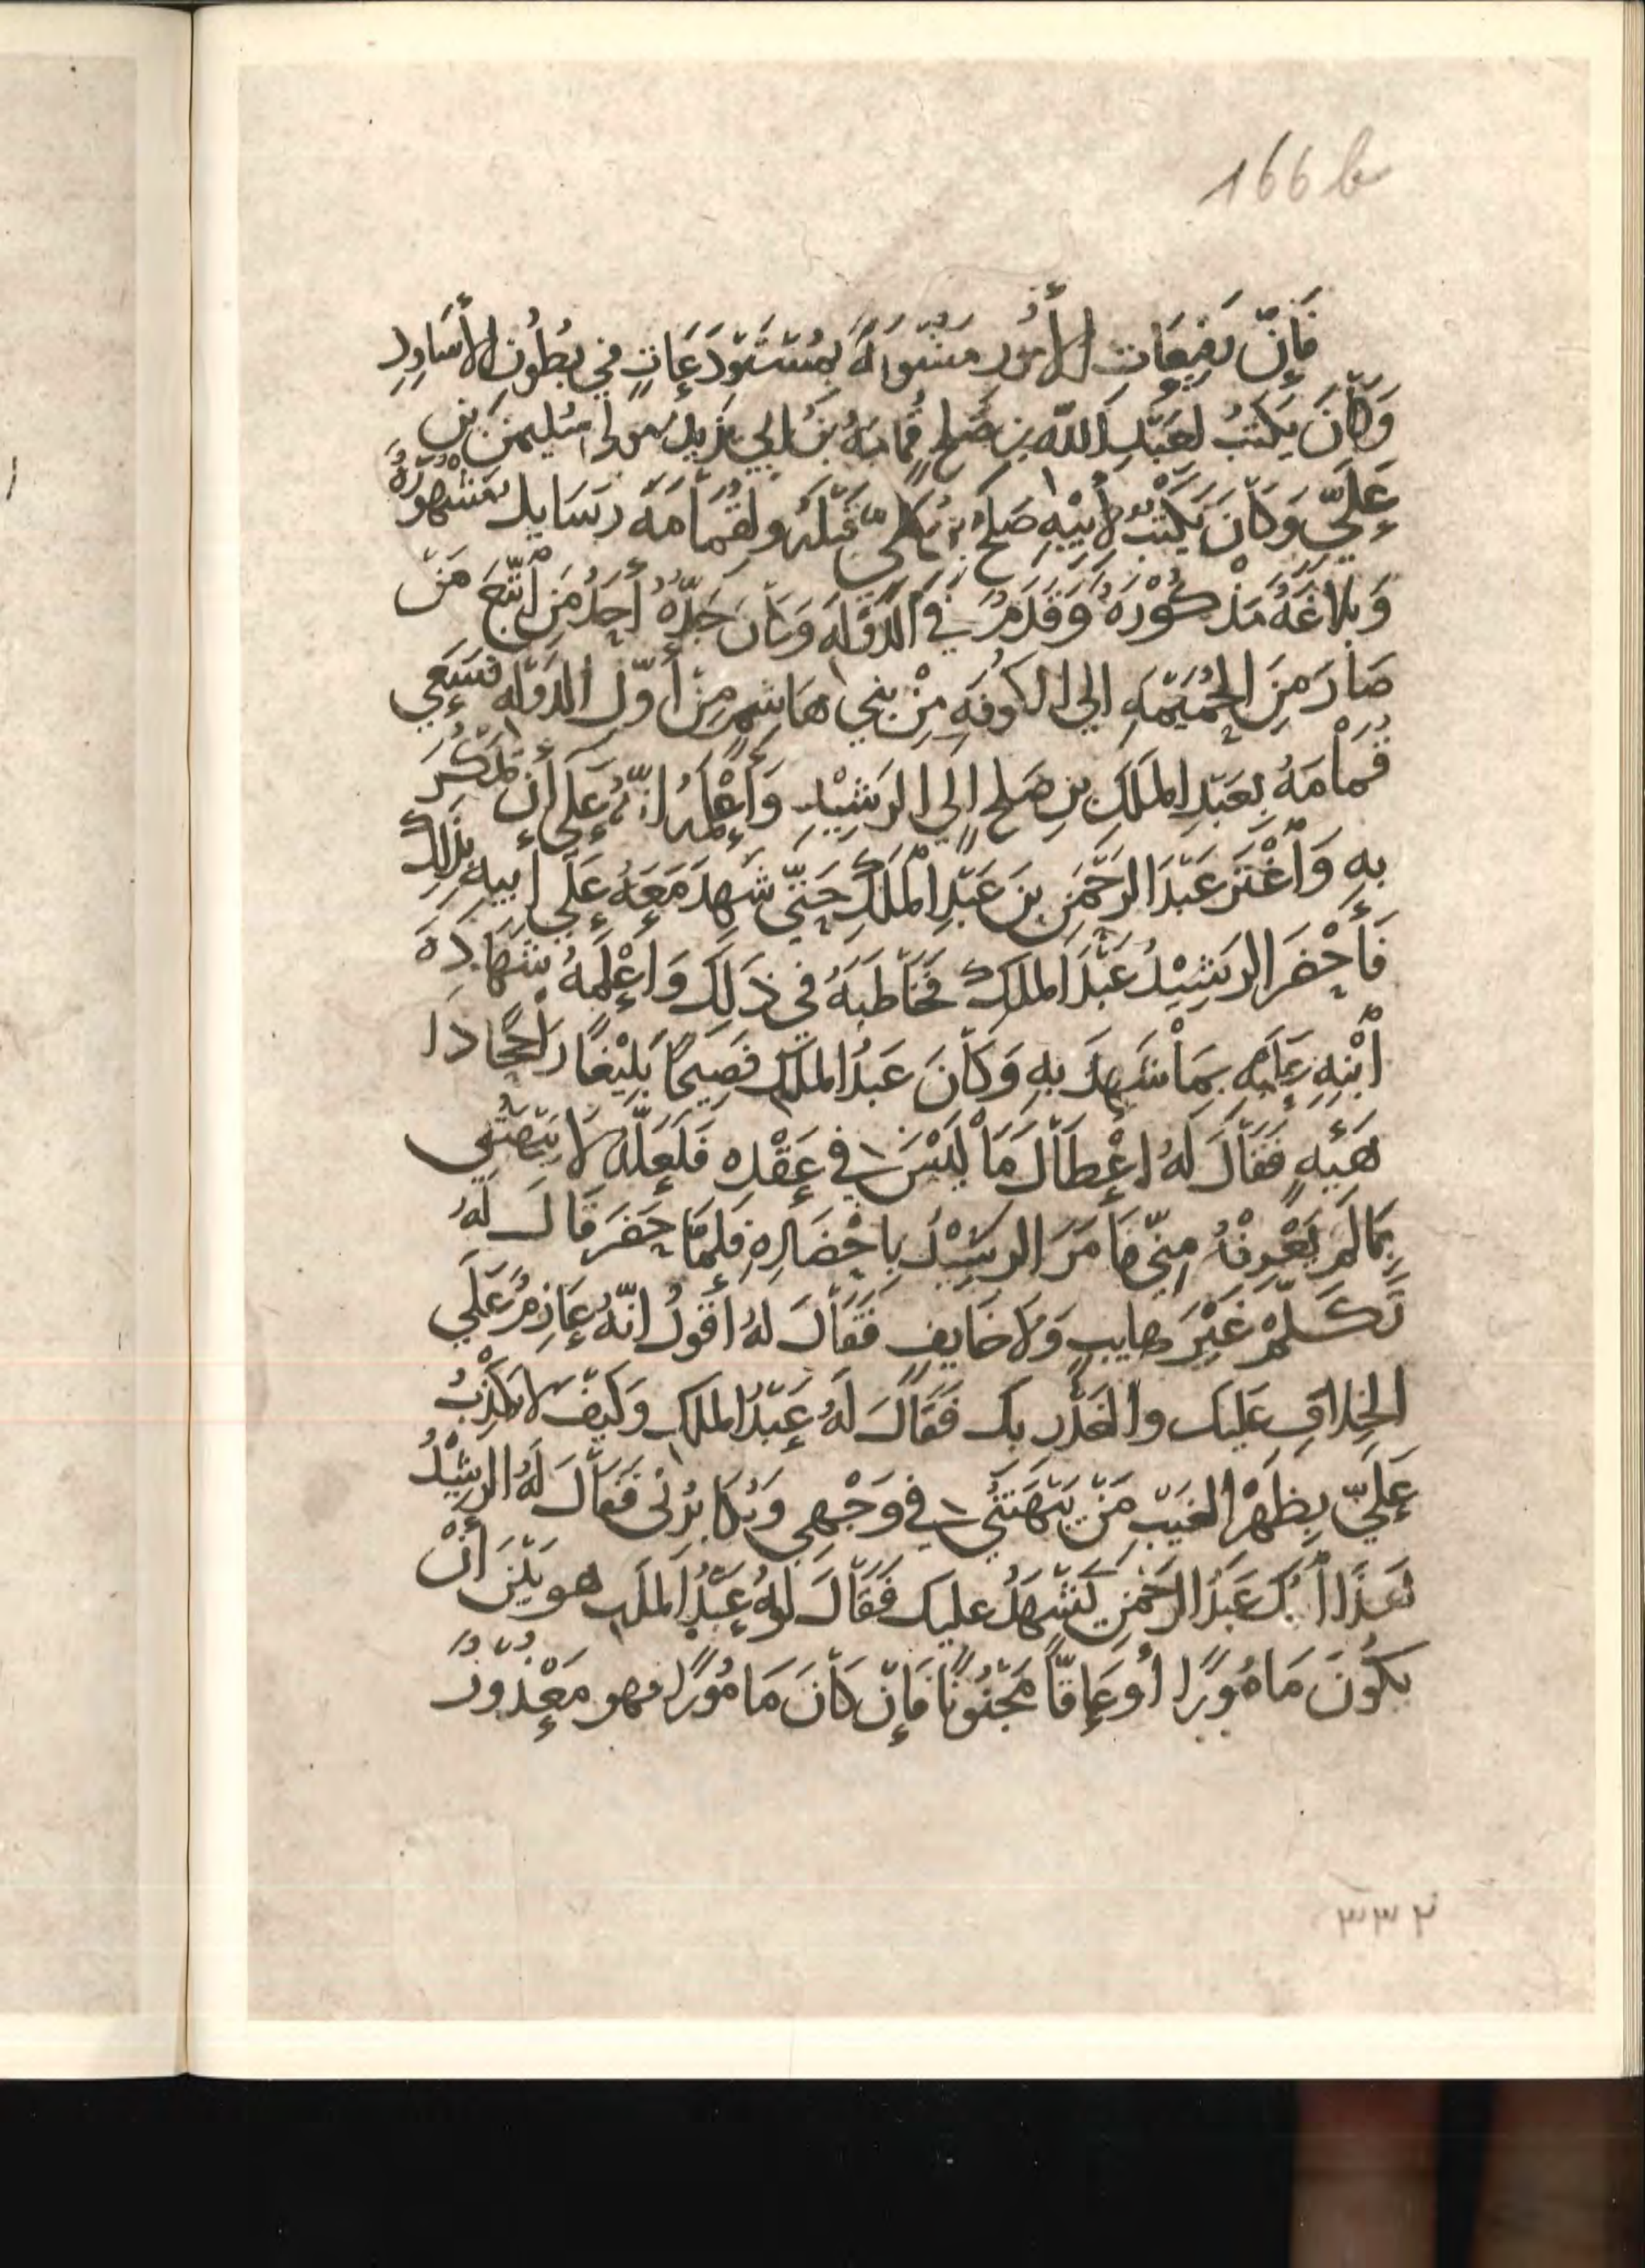 166b
فَإِنّ رَفِيعَاتِ الأُمُورِ مَشُوبَةً بمُسْتَوْدَعَاتٍ في بُطُونِ الأسَاوِدِ
وَكَانَ يَكْتُبُ لعَبْدِ الله بن صَلح قُمَامَةُ بْنُ ابي يزيد مولا سُليمنَ بن
عَلِيّ وَكَانَ يَكْتُبُ لأبِيْهِ صَلح بن عَلي قَبْلَهُ ولقُمَامَةَ رسَايل مَشْهورَةٌ
وَبَلاغَةٌ مَذْكُوْرَةٌ وَقَدَمٌ في الدَوْلَةِ وَكَانَ جَدّهُ أحَدُ مَن أنتَجَ مَنْ
صَارَ مِنَ الحُمَيْمَةِ الي الكُوفَةِ مِنْ بني هَاشِمٍ مِنْ أوّل الدَوْلَةِ فسَعَي
قُمَامَةُ بِعَبْدِ المَلَكِ بنِ صَلح إلي الرَشِيْدِ وَأعْلَمَهُ انّهُ عَلَي أن يَمْكُرَ
بِهِ وَأغْتَرَ عَبْدَ الرَحْمَنِ بنَ عَبْدِ الْمَلَكِ حَتّي شَهِدَ مَعَهُ عَلَي أبيهِ بذَلِكَ
فَأحْضَرَ الرَشِيْدُ عَبْدَ الملَكِ فخَاطَبَهُ في ذَلِكَ وَأعْلَمَهُ بشَهَادَةِ
أبْنِهِ عَلَيْهِ بِمَا شَهِدَ بِهِ وَكَانَ عَبْدُ الملَكِ فَصِيحًا بَلِيْغًا رَاجحًا ذَا
هَيْبَهٍ فَقَالَ لَهُ اعْطَاكَ مَا لَيْسَ في عَقْدِهِ فَلَعَلّهُ لا يَبْهَتُنِي
بِمَا لَمْ يَعْرِفْهُ مِنّي فَأمَرَ الرَشِيْدُ بِاحْضَارِهِ فلمّا حَضَرَ قَالَ لَهُ
تَكَلّمْ غَيْرَ هَايبٍ وَلا خَايفٍ فَقَالَ لهُ أقُولُ انّهُ عَازِمٌ عَلَي
الخِلافِ عَلَيكَ والغَدْرِ بكَ فَقَالَ لَهُ عَبْدُ الملَكِ وَكَيْفَ لا يَكْذِبُ
عَلَيّ بِظَهْرِ الغَيْبِ مَنْ يَبْهَتُنِي في وَجْهِي وَيُكَابِرُني فَقَالَ لَهُ الرشِيْدُ
فهَذَا أبنكَ عَبْدُ الرَحْمَنِ يَشْهَدُ عليكَ فَقَالَ لَهُ عَبْدُ الملَكِ هو بَيْنَ أنْ
يكُونَ مَامُوْرًا أو عَاقّاً مَجْنُونًا فَإنْ كَانَ مَامُوْرًا فهو مَعْذُوْرٌ
٣٣٢